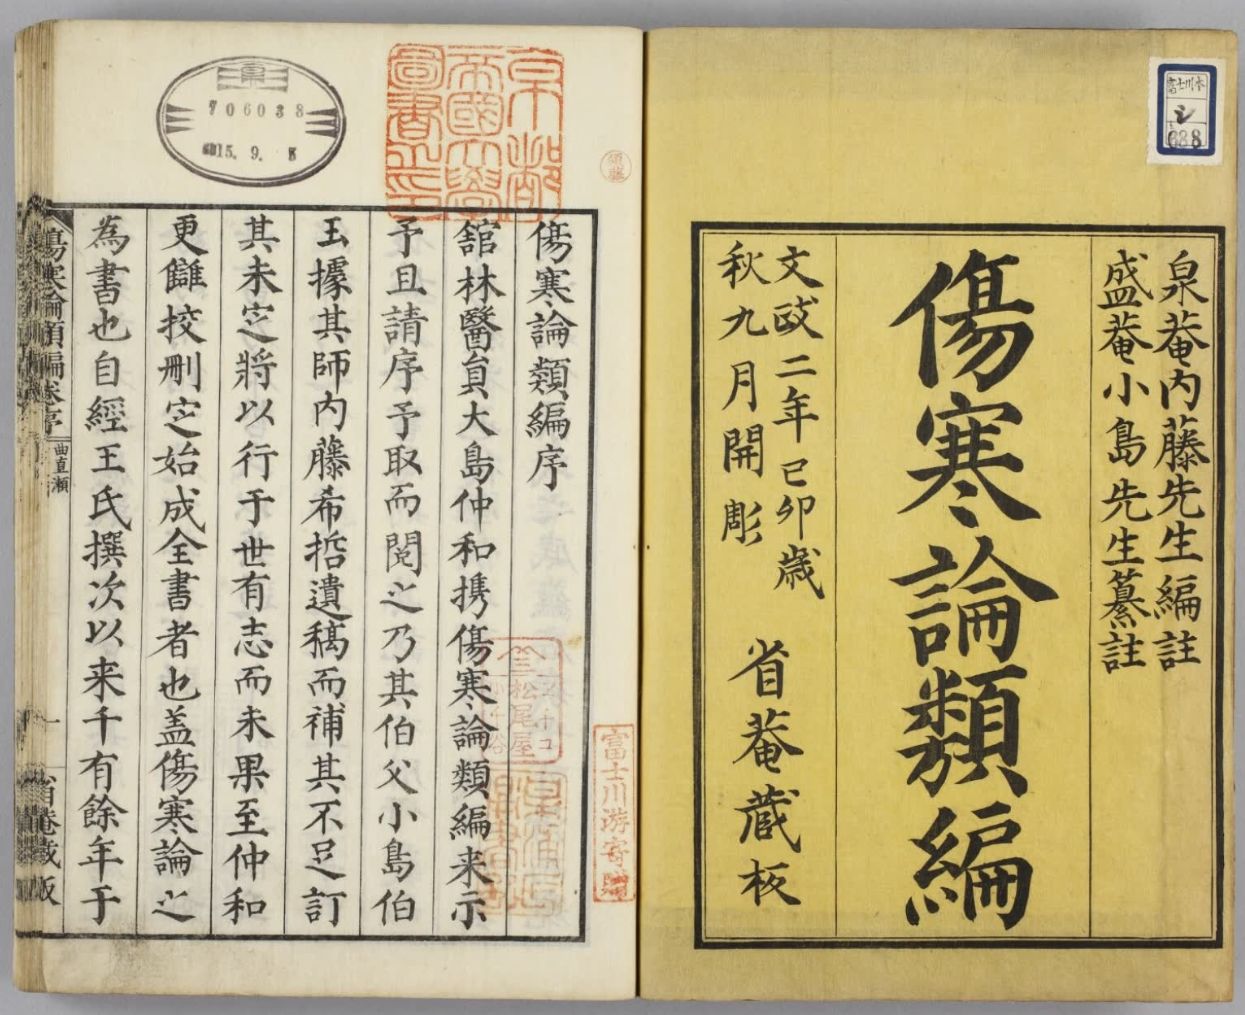 富士川本
シ
688
泉菴内藤先生編註
盛菴小島先生纂註
傷寒論類編
文政二年己卯歳
秋九月開彫
省菴蔵板
京都
帝國大學
圖書之印
706038
15. 9.
富士川游寄贈
松尾屋
傷寒論類編序
舘林醫貟大島仲和携傷寒論類編来示
予且請序予取而閲之乃其伯父小島伯
玉據其師内藤希哲遺稿而補其不足訂
其未定將以行于世有志而未果至仲和
更讎挍刪定始成全書者也盖傷寒論之
為書也自經王氏撰次以来千有餘年于
傷寒論類編卷序
曲直瀬
一
省菴蔵板